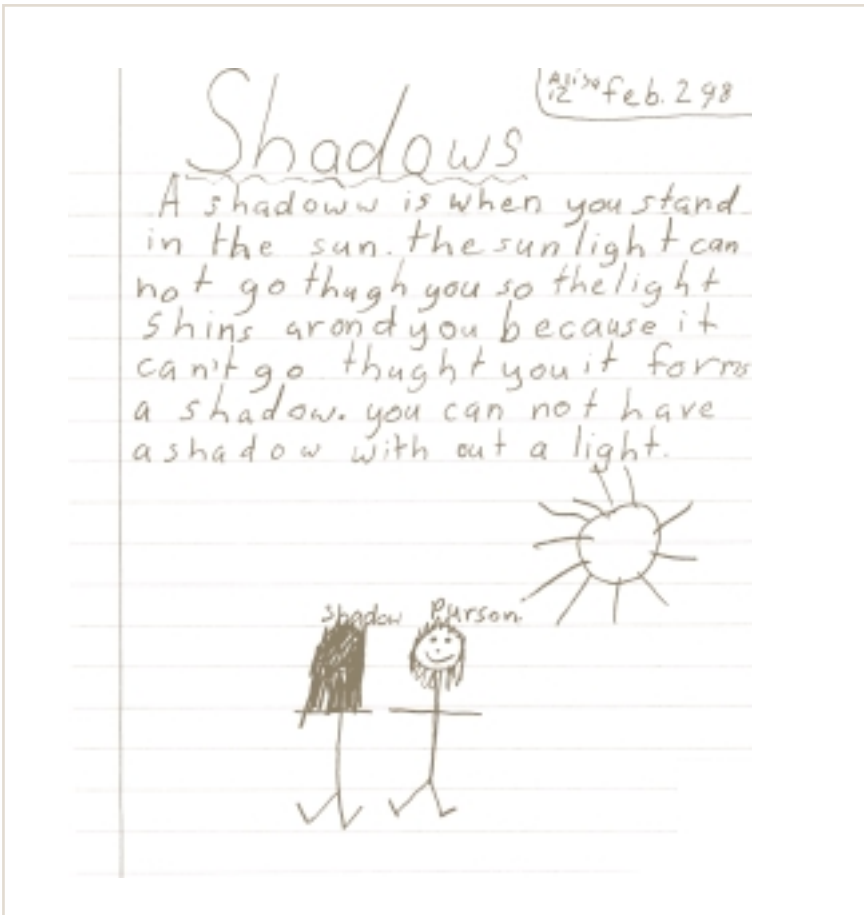 Alisa feb. 2 98
12
Shadows
A shadoww is when you stand
in the sun. the sun light can
not go thugh you so the light
Shins arond you because it
can't go thught you it forms
a shadow. you can not have
a shadow with out a light.
Shadow Purson